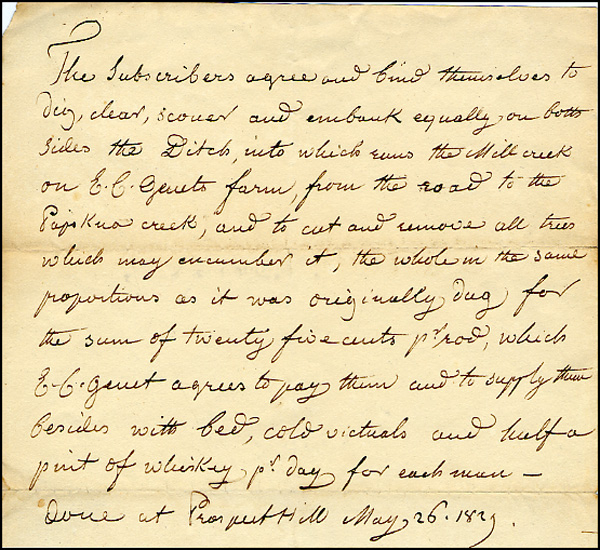 The Subscribers agree and bind themselves to
dig, clear, scouer and embank equally on both
sides the Ditch, into which runs the Mill creek
on E. C. Genets farm, from the road to the
creek, and to cut and remove all trees
which may encumber it, the whole in the same
proportions as it was originally dug for
the sum of twenty five cents pr. rod, which
E. C. Genet agrees to pay them and to supply them
besides with bed, cold victuals and half a
pint of whiskey pr. day for each man —
Done at Prospect Hill May 26. 1829.